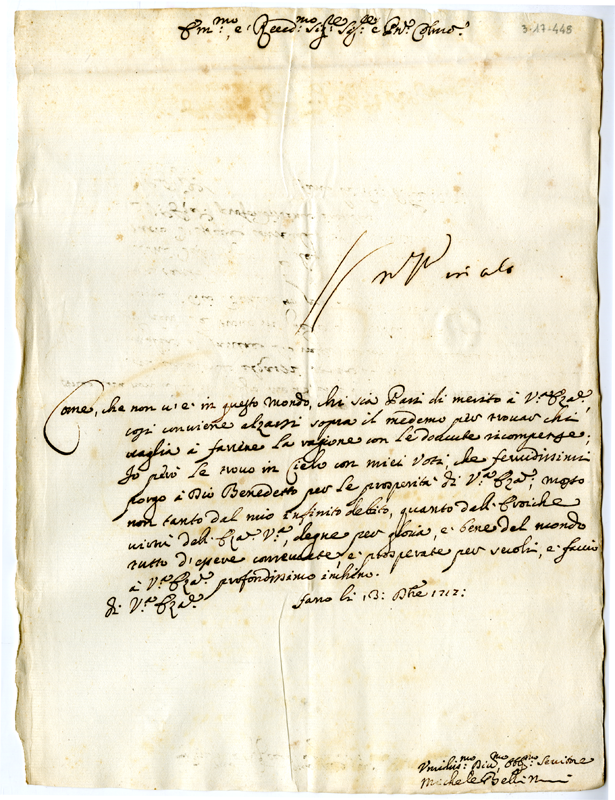 Em.mo, e Reud.mo Sig.re Sig.re e Pn.e Colmo.
3-17-448
Come, che non u'e in questo Mondo, chi sia Pari di merito à V.ra Eza.
cosi conviene alzarsi sopra il medemo per trouar chi
uaglia à farvene la ragione con le douute ricompense;
Io però le trouo in Cielo con miei Voti, che feruidissimi
porgo à Dio Benedetto per le prosperità di V.ra Eza., mosso
non tanto dal mio infinito debito, quanto dall' Eroiche
uirtù dell' Eza. V.ra, degne per gloria, e bene del mondo
tutto d'essere conseruate e prosperate per secoli, e faccio
à V.ra Eza. profondissimo inchino.
Di V.ra Eza.
Fano li 13: Dbre 1717:
Vmiliss.mo Diu.mo Obb.mo Seruitore
Michele Bellini